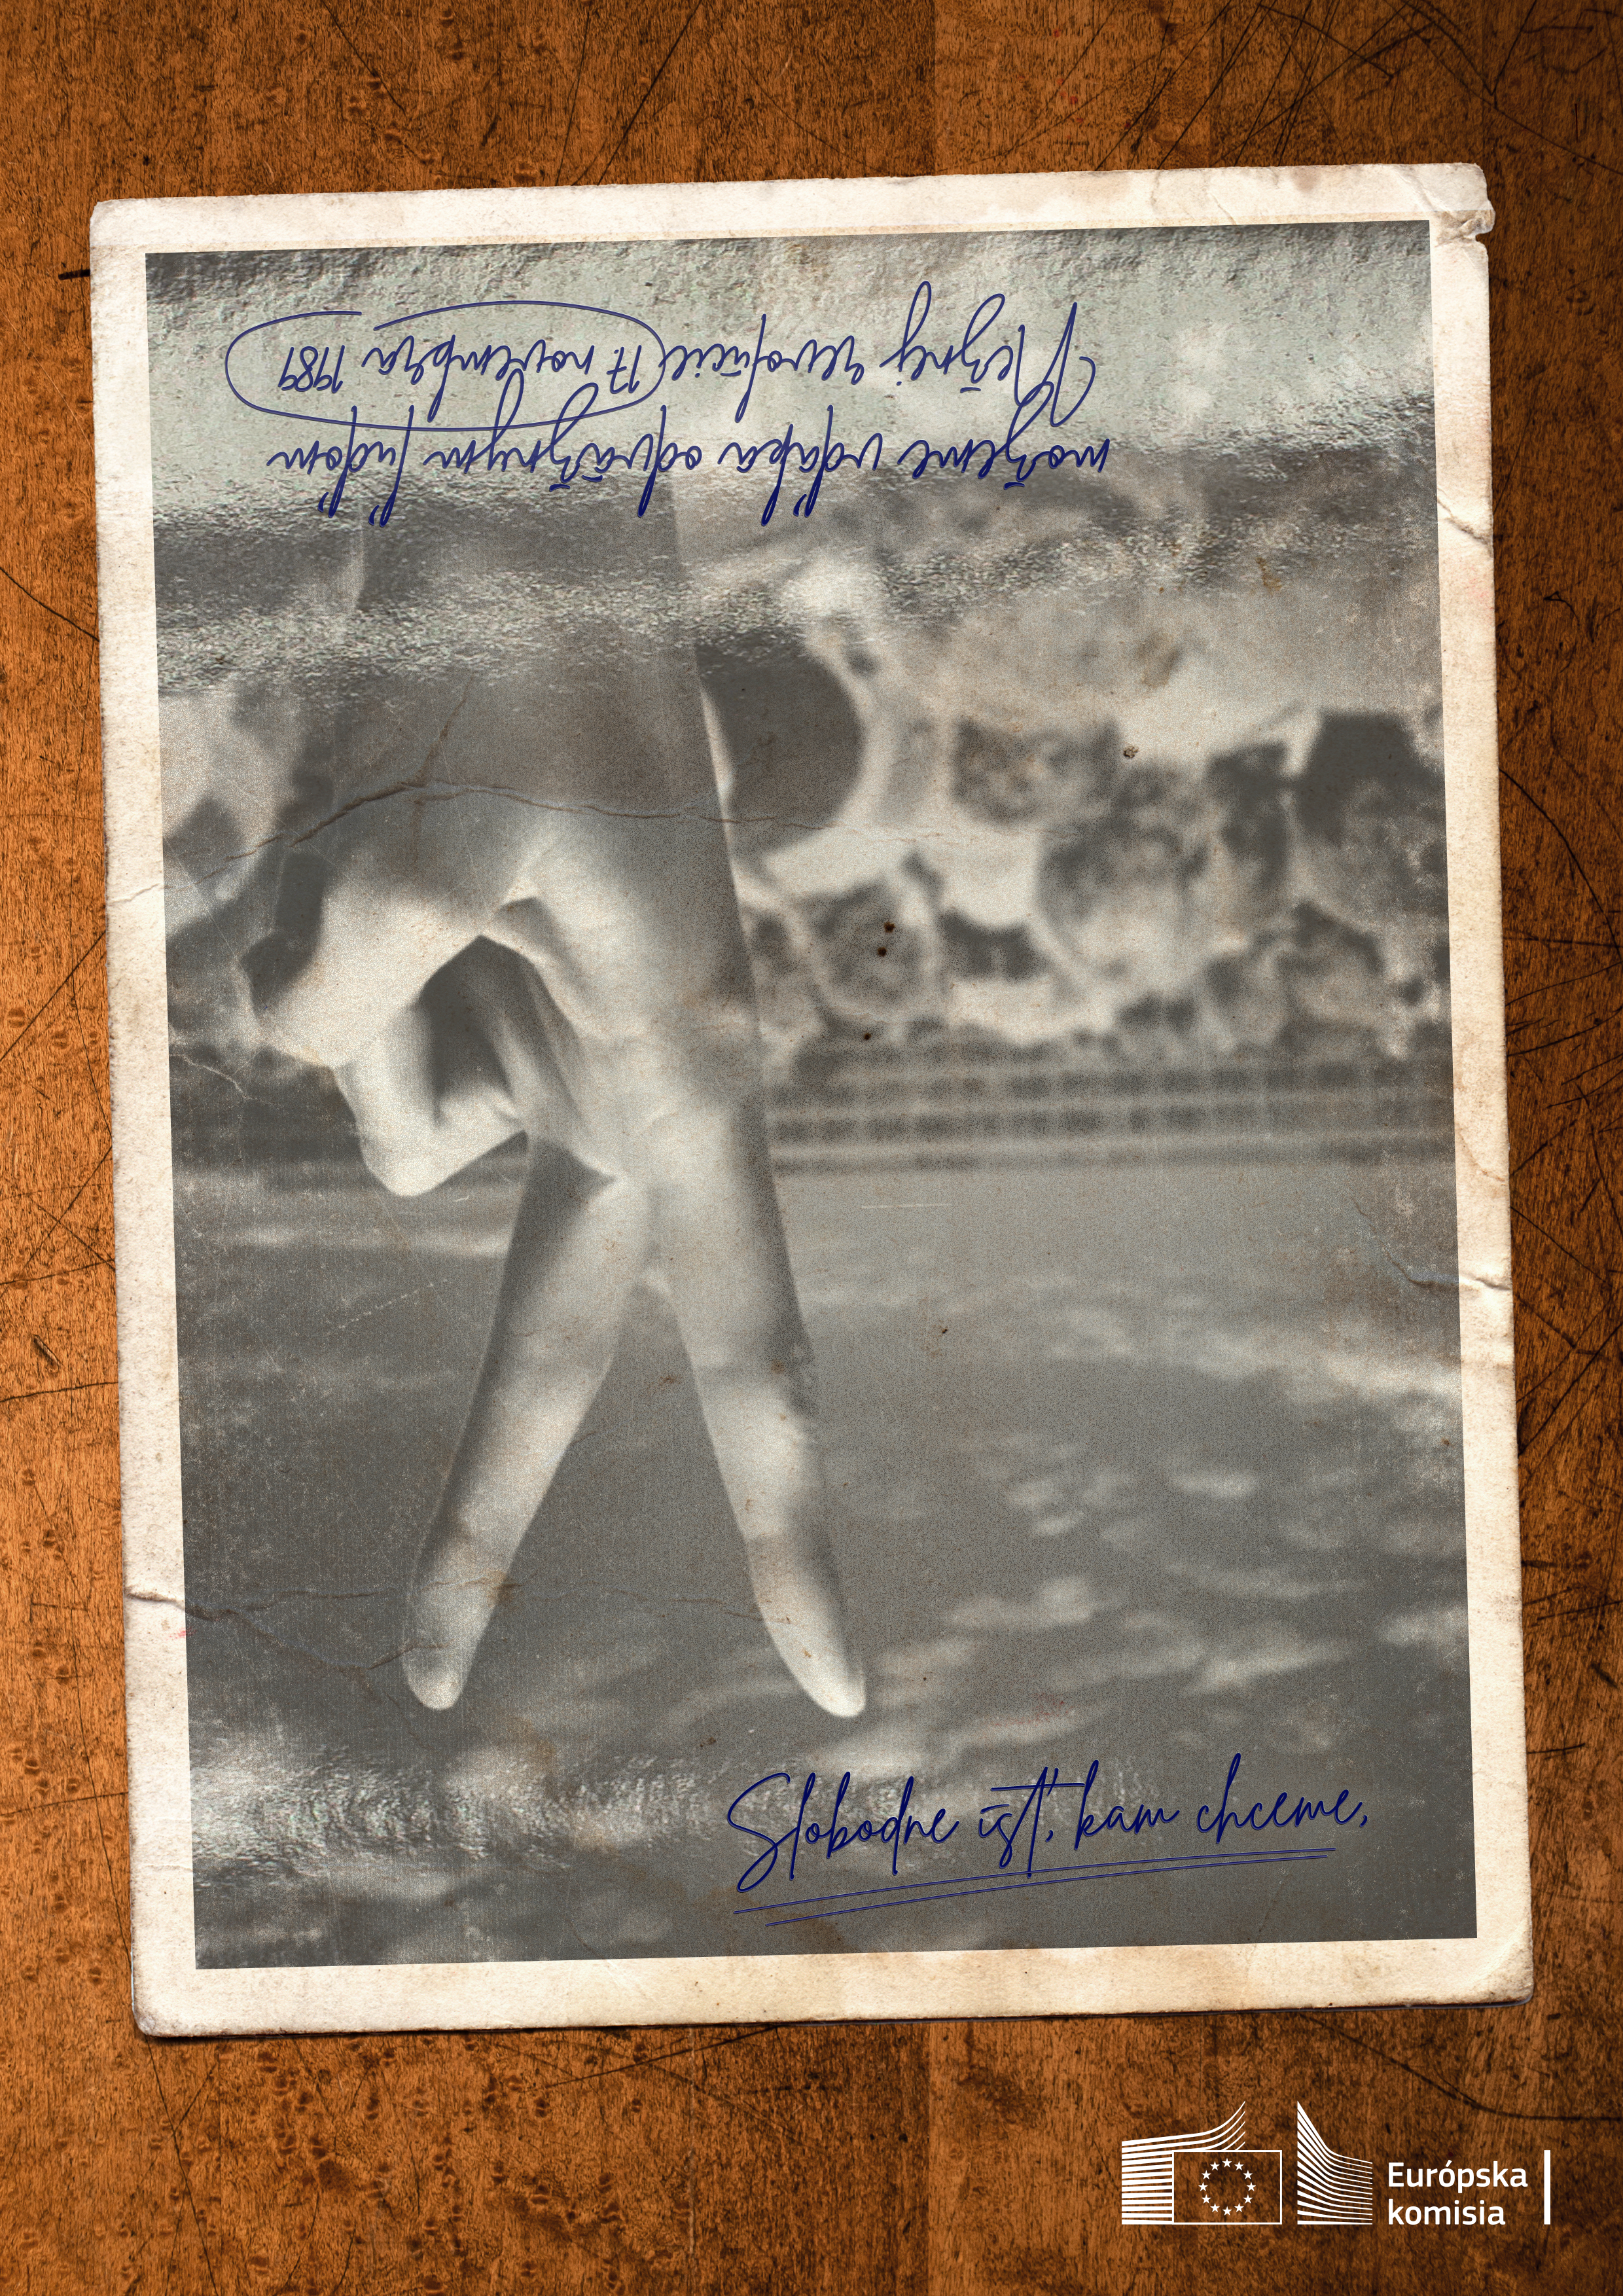 Slobodne ísť, kam chceme,
môžeme vďaka odvážnym ľuďom
Nežnej revolúcie 17. novembra 1989
Európska
komisia